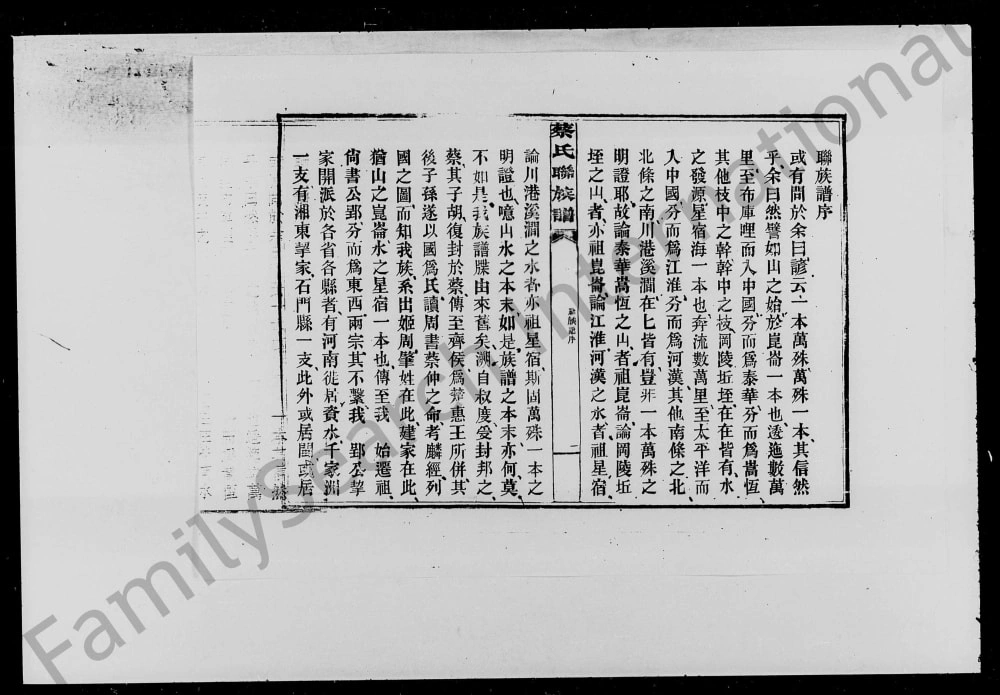 聯族譜序
或有問於余曰諺云一本萬殊萬殊一本其信然
乎余曰然譬如山之始於崑崙一本也透迤數萬
里至布庫哩而入中國分而爲泰華分而爲嵩恆
其他枝中之幹幹中之枝岡陵坵垤在在皆有水
之發源星宿海一本也奔流數萬里至太平洋而
入中國分而爲江淮分而爲河漢其他南條之北
北條之南川港溪澗在七皆有豈非一本萬殊之
明證耶故論泰華嵩恆之山者祖崑崙論岡陵坵
垤之山者亦祖崑崙論江淮河漢之水者祖星宿
蔡氏聯族譜
聯族譜序
二
論川港溪澗之水者亦祖星宿斯固萬殊一本之
明證也噫山水之本末如是族譜之本末亦何莫
不如是我族譜牒由來舊矣溯自叔度受封邦之
蔡其子胡復封於蔡傳至齊侯爲楚惠王所併其
後子孫遂以國爲氏讀周書蔡仲之命考麟經列
國之圖而知我族系出姬周肇姓在此建家在此
猶山之崑崙水之星宿一本也傳至我 始遷祖
尙書公郢分而爲東西兩宗其不繫我 郢公挈
家開派於各省各縣者有河南徙居資水千家洲
一支有湘東挈家石門縣一支此外或居閩或居
FamilySearch International